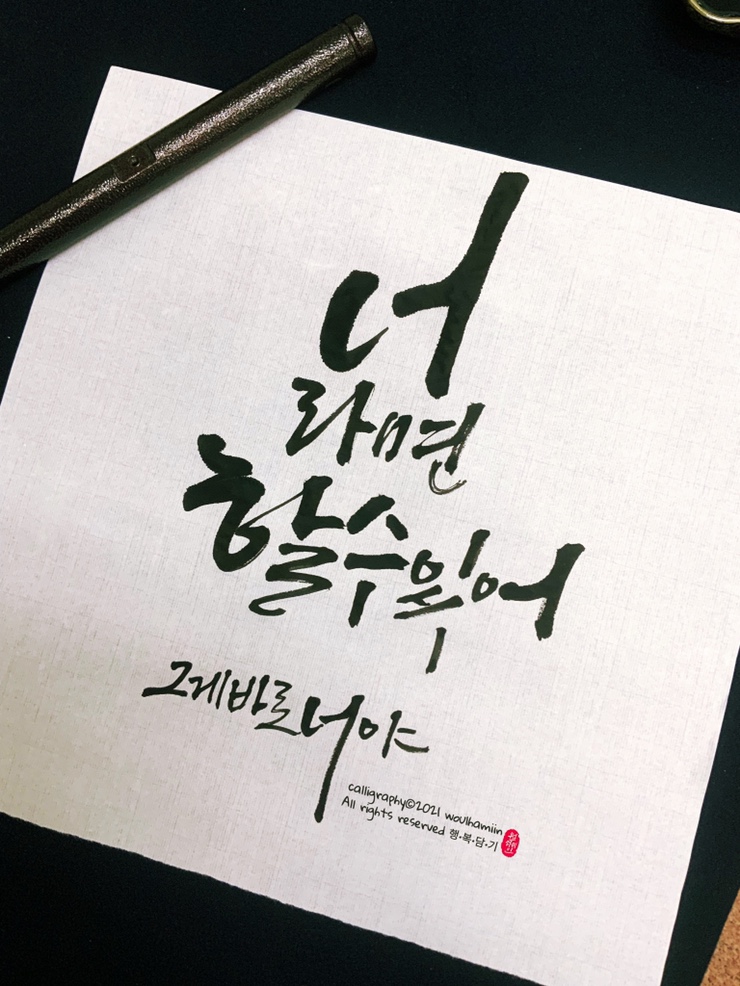 너
라면
할수있어
그게바로너야
calligraphy©2021 woulhamiin
All rights reserved 행·복·담·기